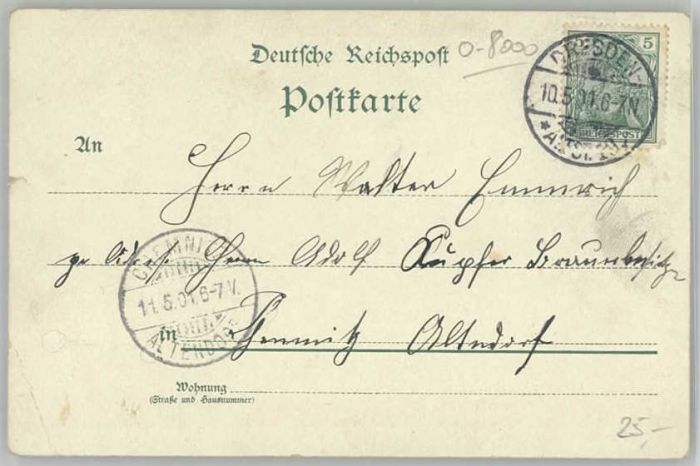 Deutsche Reichspost
0-8000
Postkarte
5
REICHSPOST
DRESDEN-
10.5.01.6-7N.
* ALTST. *
An
Herrn Walter Emmrich
Herrn Adolf Kupfer Braunbesitzer
CHEMNITZ
11.5.01.6-7V.
ALTENDORF
in Chemnitz Altndorf
Wohnung
(Straße und Hausnummer)
25,-